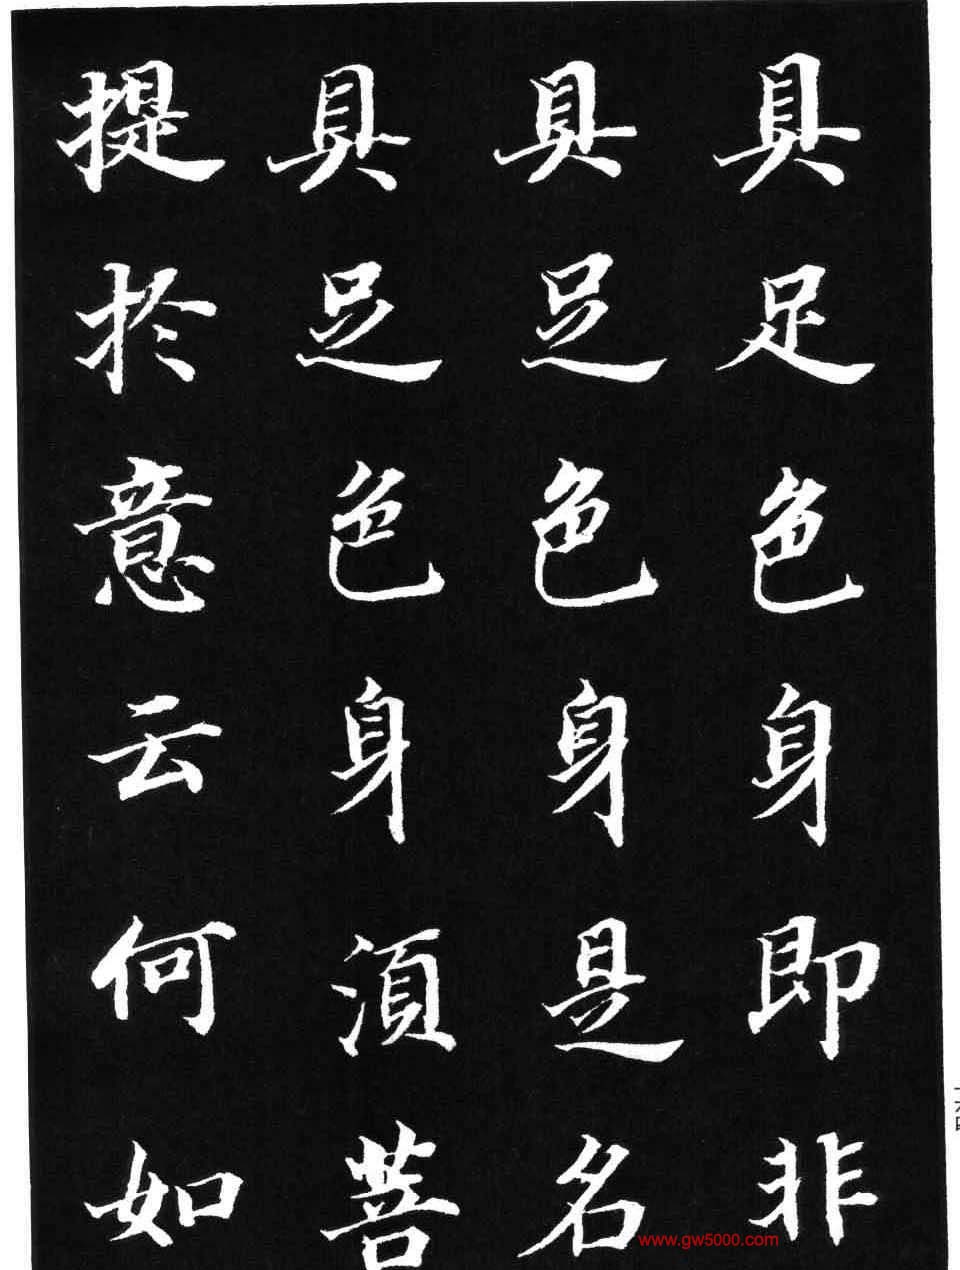 具足色身即非
具足色身是名
具足色身須菩
提於意云何如
www.gw5000.com